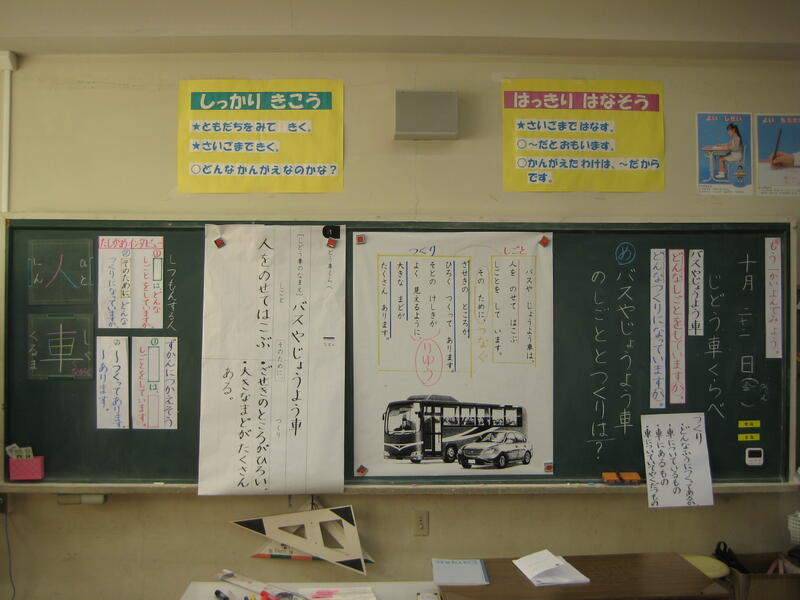 しっかり きこう
★ともだちを みて きく。
★さいごまで きく。
○どんな かんがえなのかな?
はっきり はなそう
★さいごまで はなす。
○~だと おもいます。
○かんがえた わけは、~だから
です。
よい しせい
十月二十二日(金)
じどう車くらべ
バスやじょうよう車
どんなしごとをしていますか。
どんなつくりになっていますか。
め バスやじょうよう車
のしごととつくりは?
つくり
・車についているもの
・車にあるもの
しごと
つくり
バスや じょうよう車は、
人を のせて はこぶ
しごとを して います。
その ために、
つなぐ
ざせきの ところが、
ひろく つくって あります。
そとの けしきが
よく 見えるように、
大きな まどが
たくさん あります。
りゆう
1
じどう車くらべ
(じどう車のなまえ)
バスやじょうよう車
しごと
人をのせてはこぶ
(そのために)
つくり
・ざせきのところがひろい。
・大きなまどがたくさん
ある。
たしかめインタビュー
しつもんする人
①
は、どんな
しごとをしていますか。
②
そのために、どんな
つくりになっていますか。
ずかんにつかえそう
①
は、
しごとをしています。
②
~つくってあります。
~あります。
人
ひと
じん
車
しゃ
くるま